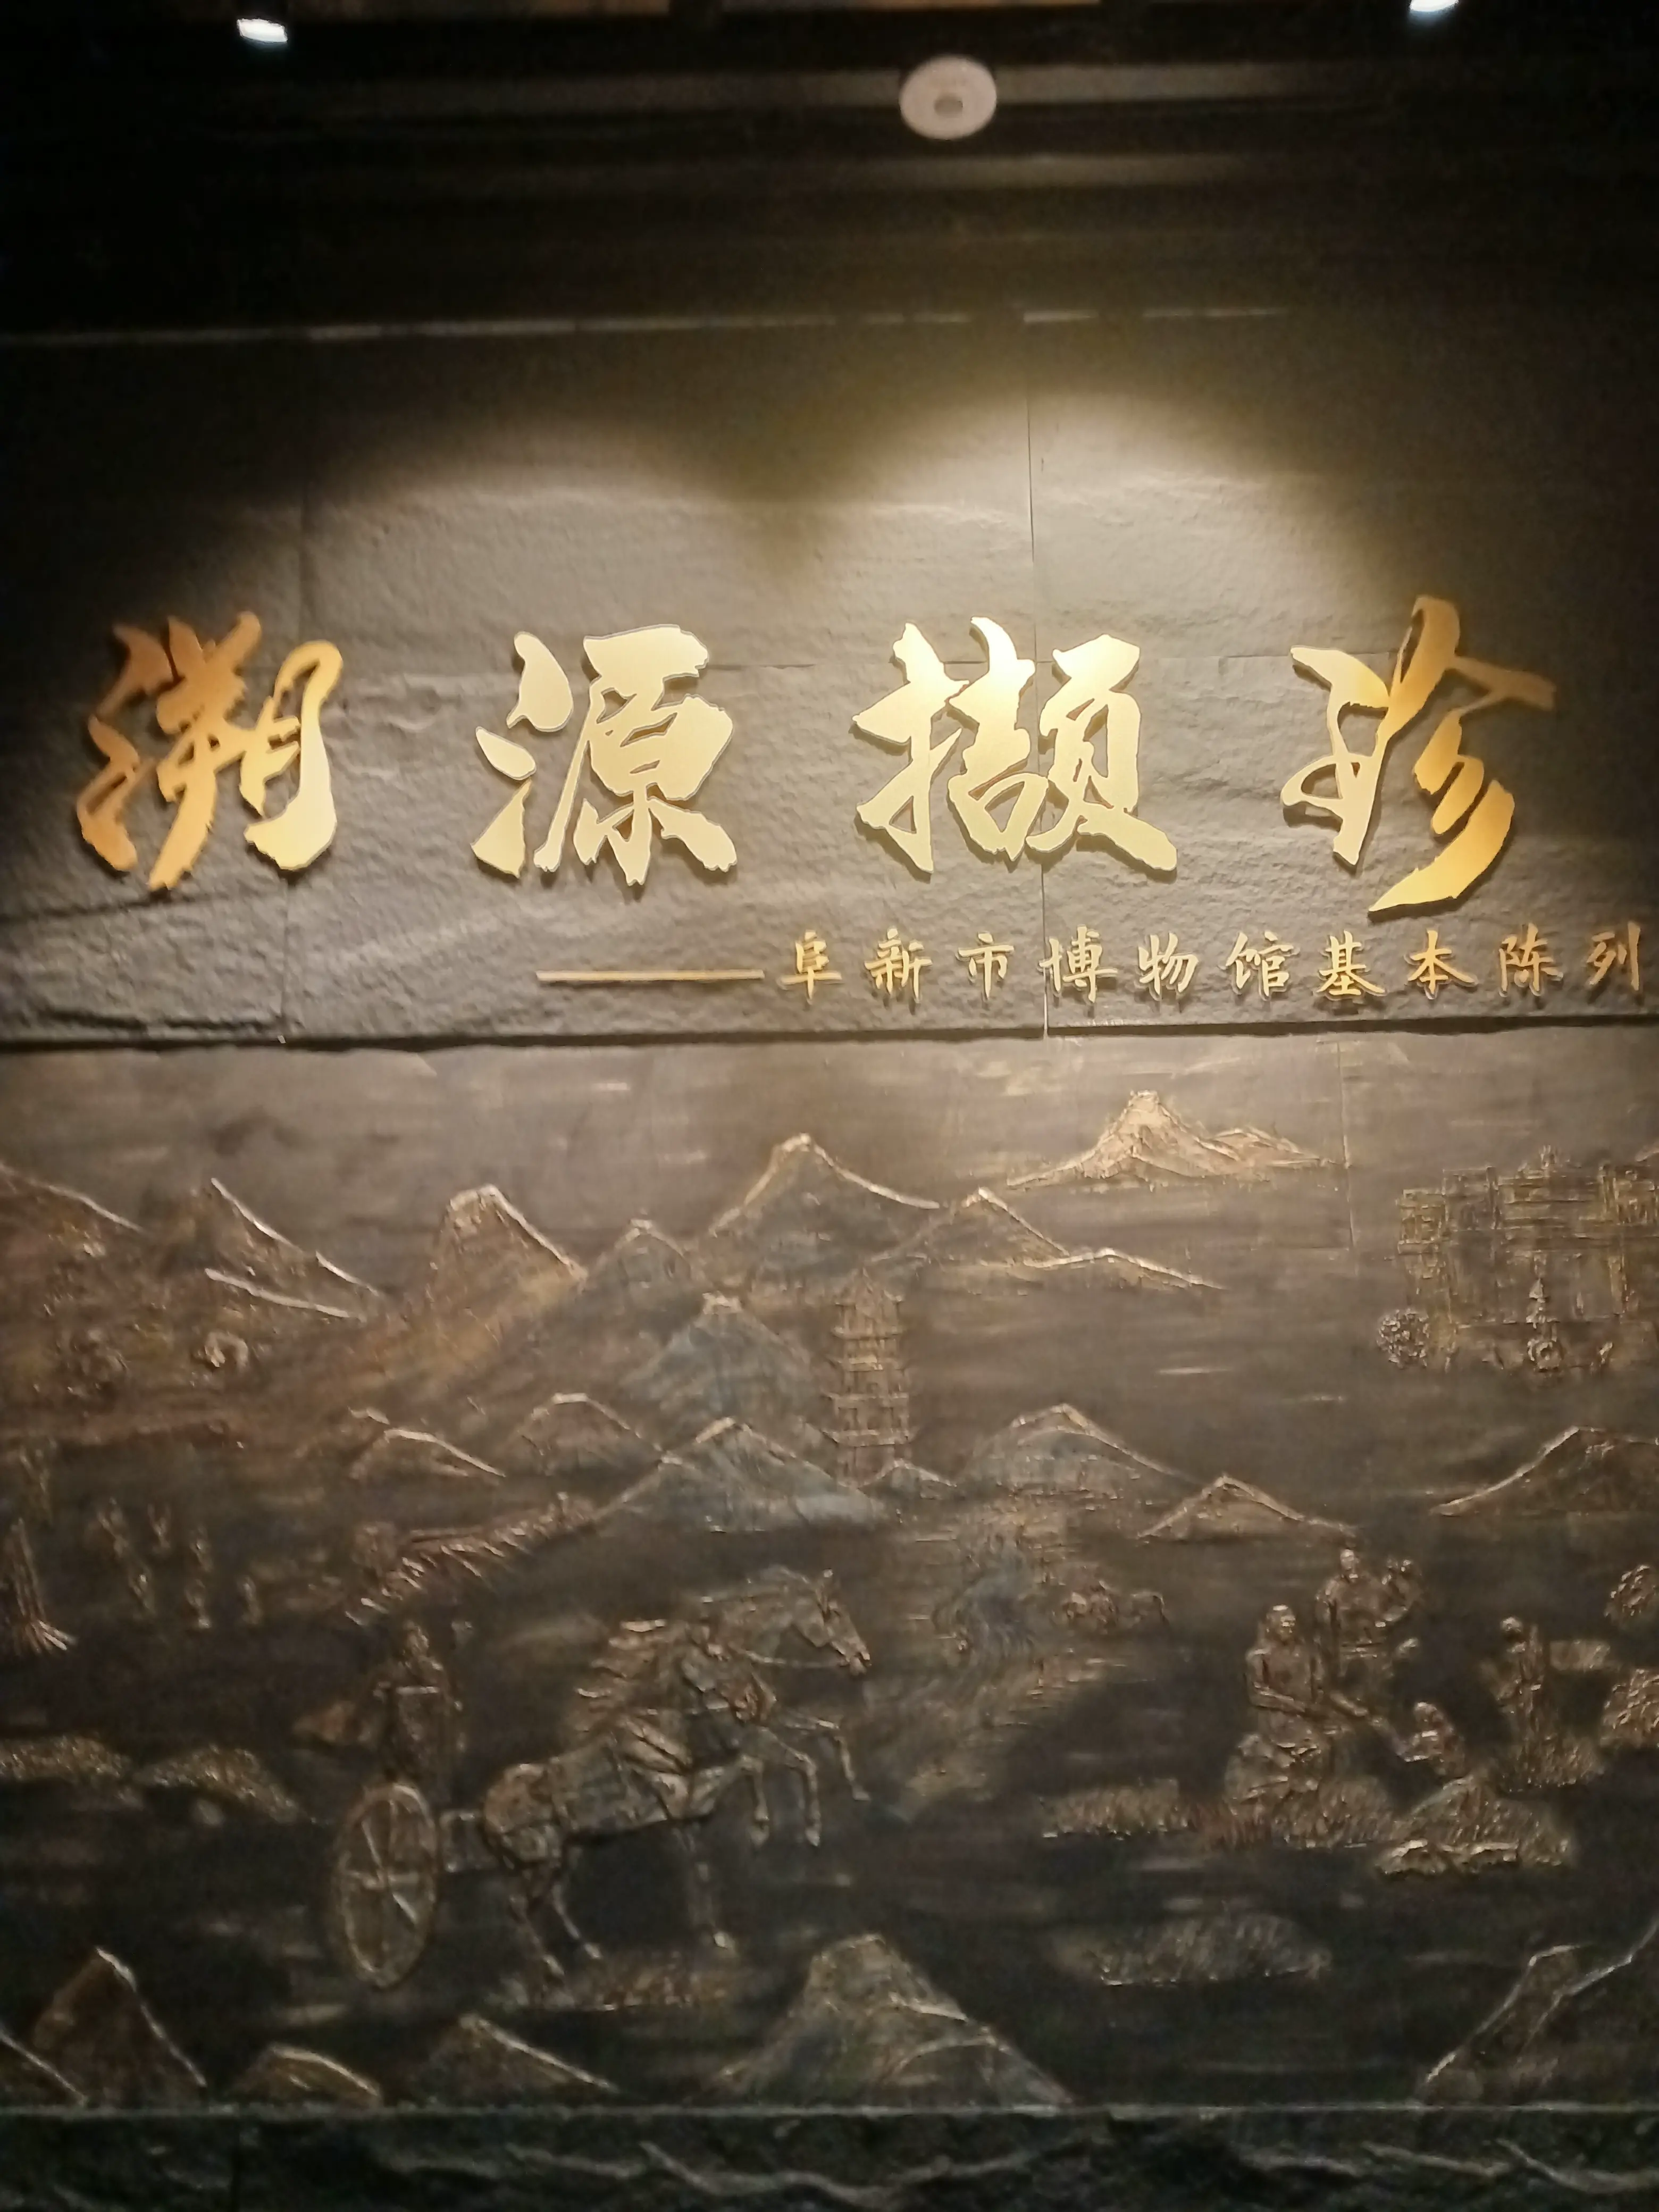 溯源撷珍
——阜新市博物馆基本陈列